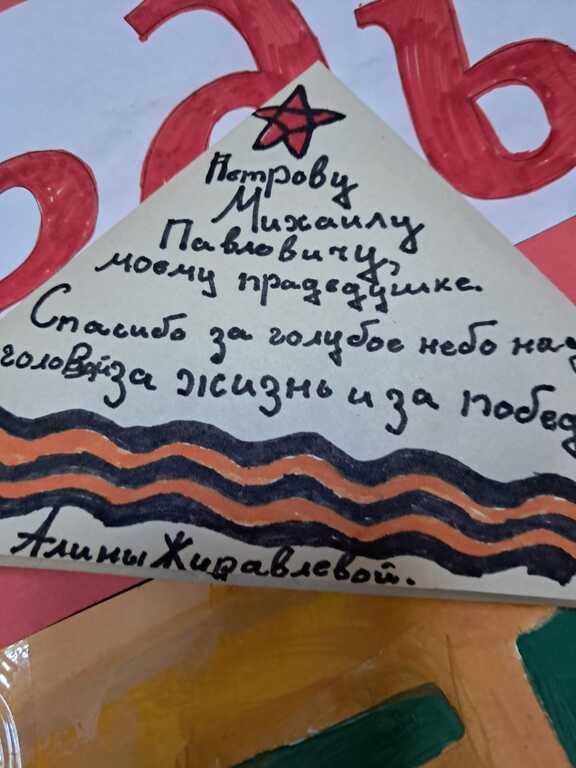 Петрову
Михаилу
Павловичу,
моему прадедушке.
Спасибо за голубое небо над
головой за жизнь и за побед
Алины Журавлевой.